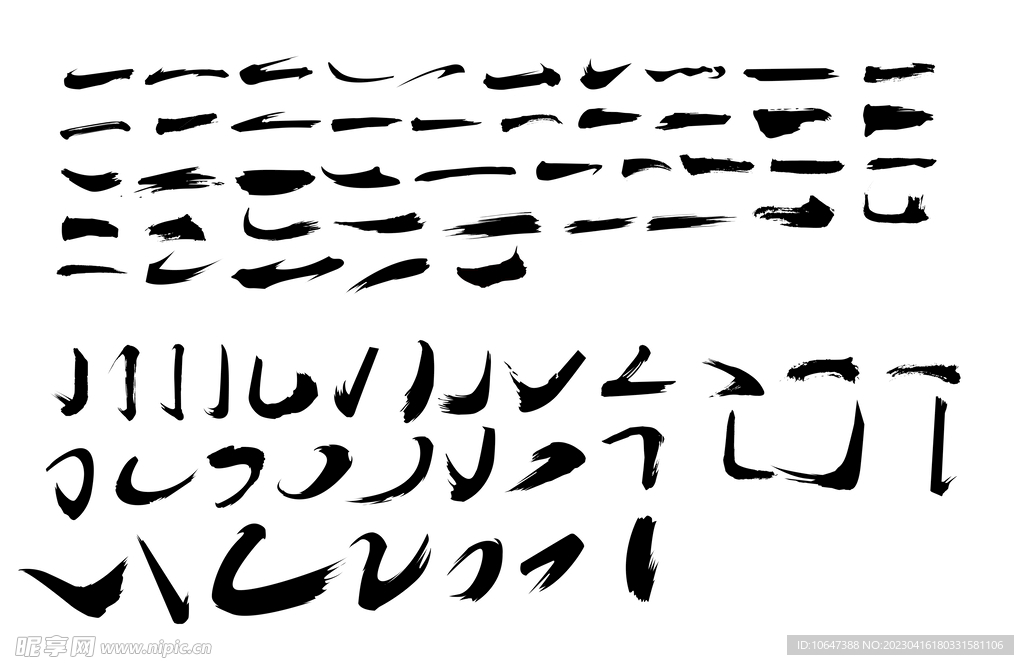 昵享网 www.nipic.cn
ID:10647388 NO:20230416180331581106